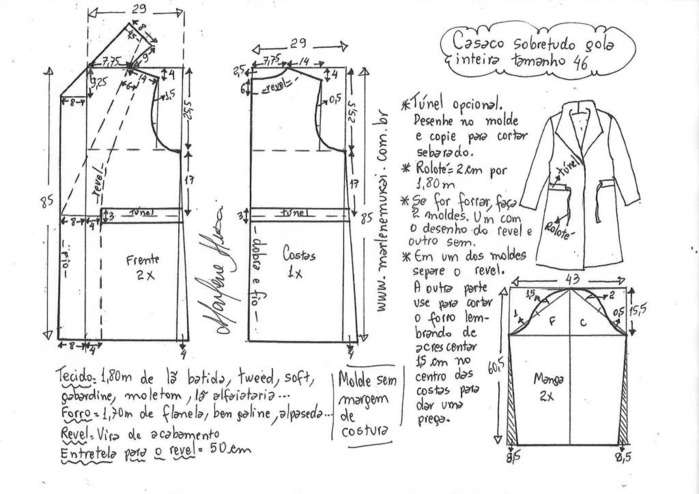 Casaco sobretudo gola
inteira tamanho 46
29
8
1,5
9
7,75
14
4
6
9,25
8
1,5
25,5
revel
17
85
3
túnel
8
4
fio
Frente
2x
8
4
4
29
2,5
7,75
14
4
6
revel
0,5
25,5
17
3
túnel
85
dobra e fio
Costas
1x
4
Marlene Mukai
www.marlenemukai.com.br
* Túnel opcional.
Desenhe no molde
e copie para cortar
sebarado.
* Rolotê = 2 cm por
1,80m
* Se for forrar, faça
2 moldes. Um com
o desenho do revel e
outro sem.
* Em um dos moldes
separe o revel.
A outra parte
use para cortar
o forro lem-
brando de
acrescentar
15 cm no
centro das
costas para
dar uma
prega.
túnel
Rolotê
43
1,5
2
1
0,5
F
C
15,5
60,5
Manga
2x
8,5
8,5
Tecido = 1,80m de lã batida, tweed, soft,
gabardine, moletom, lã alfaiataria...
Forro = 1,70m de flanela, bengaline, alpaseda...
Revel = Vira de acabamento
Entretela para o revel = 50 cm
Molde sem
margem
de
costura